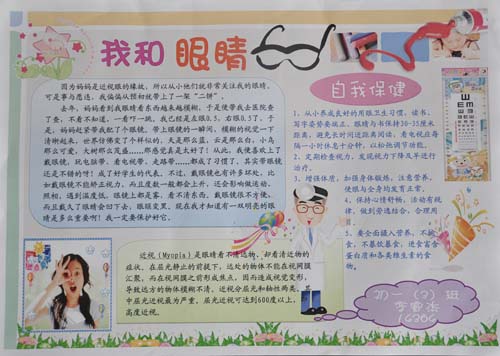 我和 眼睛
因为妈妈是近视眼的缘故，所以从小他们就非常关注我的眼睛，
可是事与愿违，我偏偏从预初就带上了一架“二饼”。
去年，妈妈看到我眼睛看东西越来越模糊，于是便带我去医院查
了查，不看不知道，一看吓一跳，我已经是左眼0.5，右眼0.5了。于
是，妈妈赶紧带我配了个眼镜。带上眼镜的一瞬间，模糊的视觉一下
清晰起来，世界仿佛变了个样似的，天是那么蓝，云是那么白，小鸟
那么可爱，大树那么茂盛……那感觉真是太好了！从此，我便喜欢上了
戴眼镜，玩电脑带，看电视带，走路带……都成了习惯了，其实带眼镜
还是不错的呀！成了好学生的代表。不过，戴眼镜也有许多坏处，比
如戴眼镜不能矫正视力，而且度数一般都会上升，还会影响做运动，
照相，遇到温度低，眼镜上都是雾，看不清东西，戴眼镜很不方便，
而且戴久了眼睛会凹下去，眼圈变黑，现在我才知道有一双明亮的眼
睛是多么重要啊！我一定要保护好它。
自我保健
1．从小养成良好的用眼卫生习惯，读书、
写字姿势要端正，眼睛与书保持30-35厘米
距离，避免长时间近距离阅读。看电视应每
隔一小时休息十分钟，以松弛调节功能。
2．定期检查视力，发现视力下降及早进行
治疗。
3．增强体质，加强身体锻炼，注意营养，
使眼与全身均发育正常。
4．保持心情舒畅，活动有规
律，做到劳逸结合，合理用
目。
5．要全面摄入营养，不挑
食，不暴饮暴食，进食富含
蛋白质和各类维生素的食
物。
近视（Myopia）是眼睛看不清远物、却看清近物的
症状。在屈光静止的前提下，远处的物体不能在视网膜
汇聚，而在视网膜之前形成焦点，因而造成视觉变形，
导致远方的物体模糊不清。近视分屈光和轴性两类，
中屈光近视最为严重，屈光近视可达到600度以上，即
高度近视。
初一（3）班